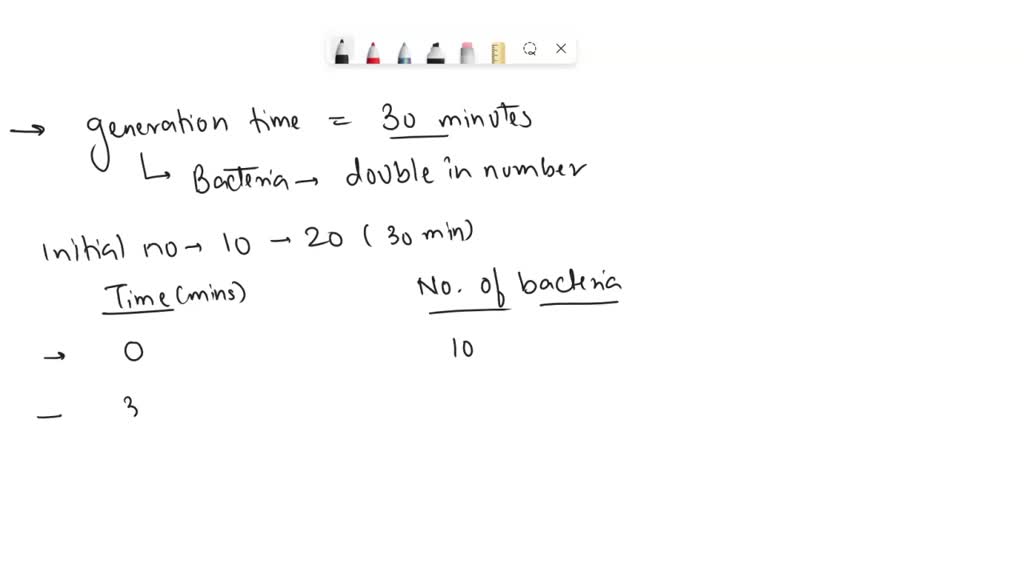 → generation time = 30 minutes
↳ Bacteria → double in number
Initial no → 10 → 20 (30 min)
Time (mins) No. of bacteria
→ 0 10
— 3